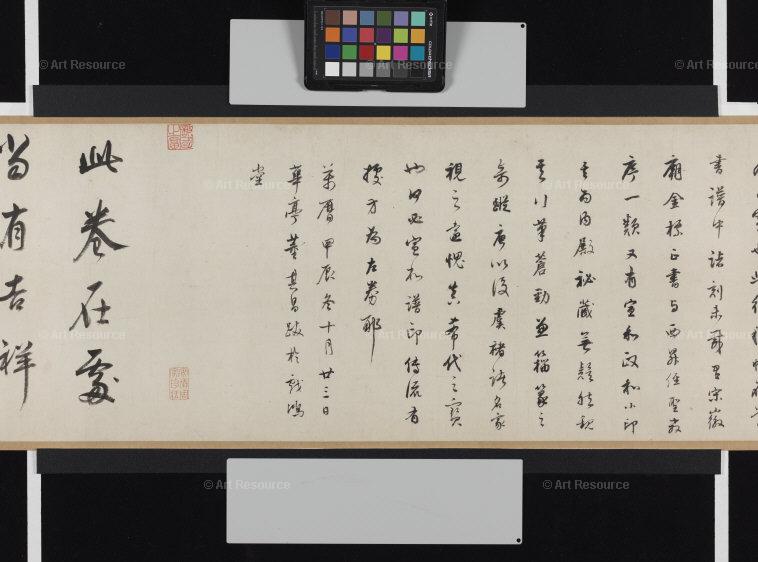 書譜中諸刻未載有宋徽
廟金標正書與西昇經聖教
序一類又有宣和政和小印
其為內殿祕藏無疑然觀
其行筆蒼勁兼籀篆之
奇蹤唐以後虞褚諸名家
視之遠愧真希代之寶
也何必宣和譜印傳流有
據方為左券耶
萬曆甲辰冬十月廿三日
華亭董其昌跋於戲鴻
堂
此卷在處
當有吉祥
© Art Resource
© Art Resource
© Art Resource
© Art Resource
© Art Resource
© Art Resource
© Art Resource
© Art Resource
© Art Resource
© Art Resource